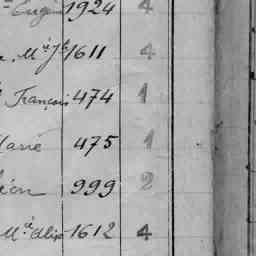 Eugène 1924 4
Mie Jh 1611 4
François 474 1
Marie 475 1
Léon 999 2
Mie Alix 1612 4